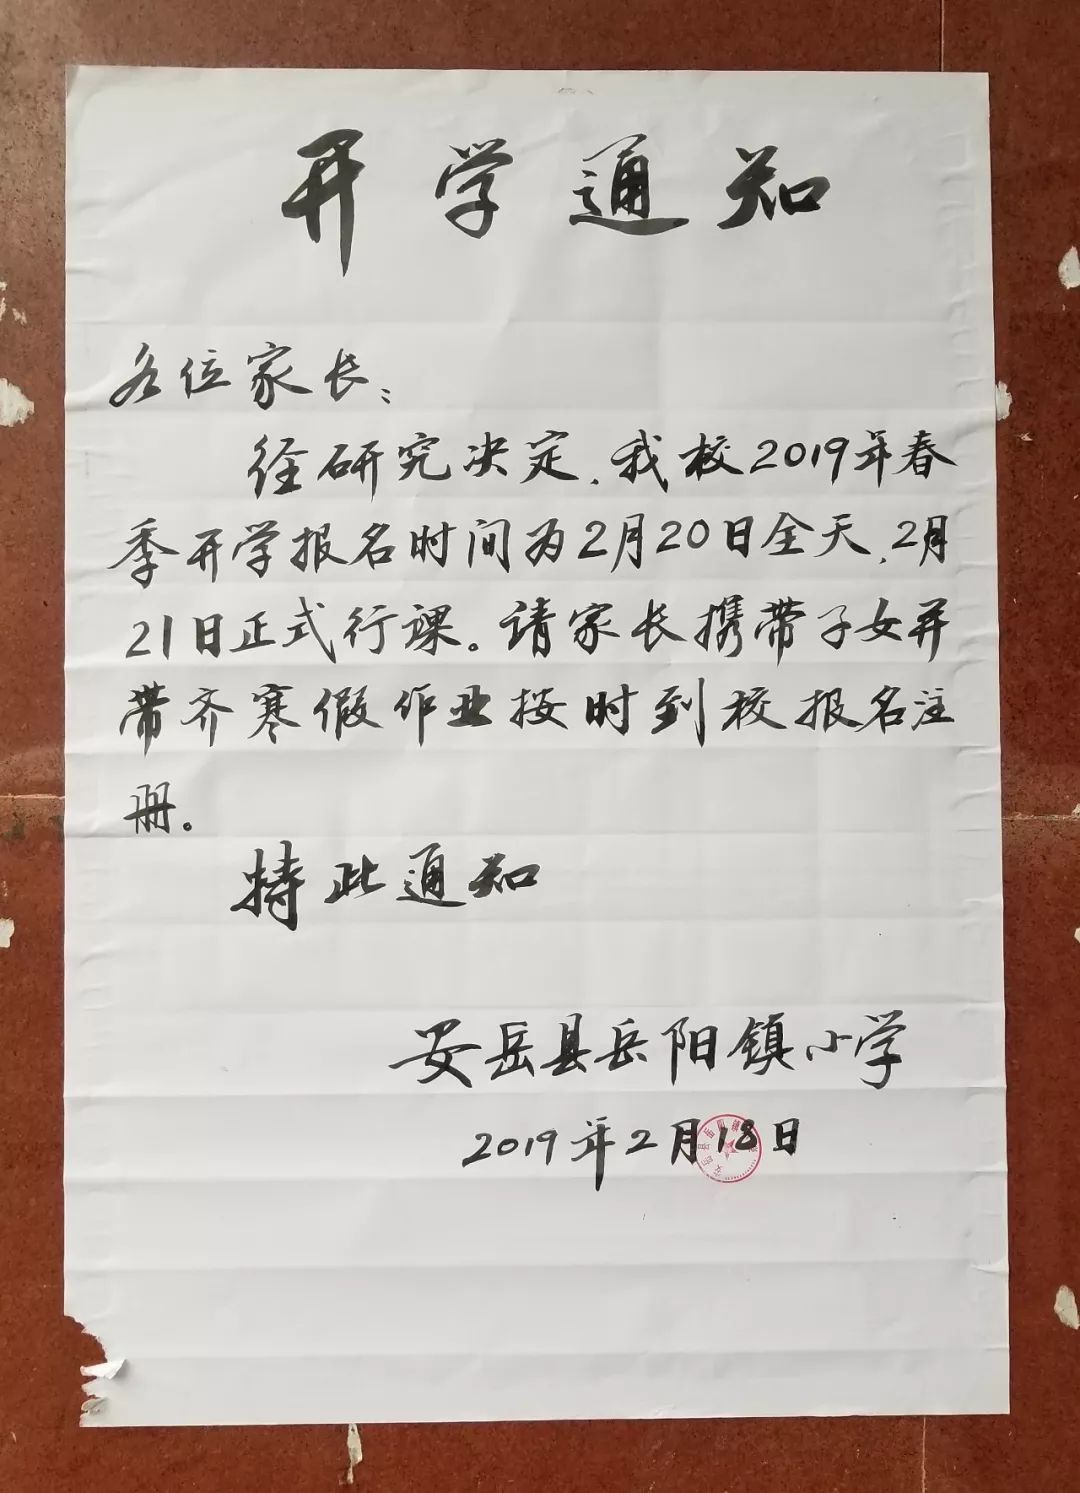 开学通知
各位家长：
经研究决定，我校2019年春
季开学报名时间为2月20日全天，2月
21日正式行课。请家长携带子女并
带齐寒假作业按时到校报名注
册。
特此通知
安岳县岳阳镇小学
2019年2月18日